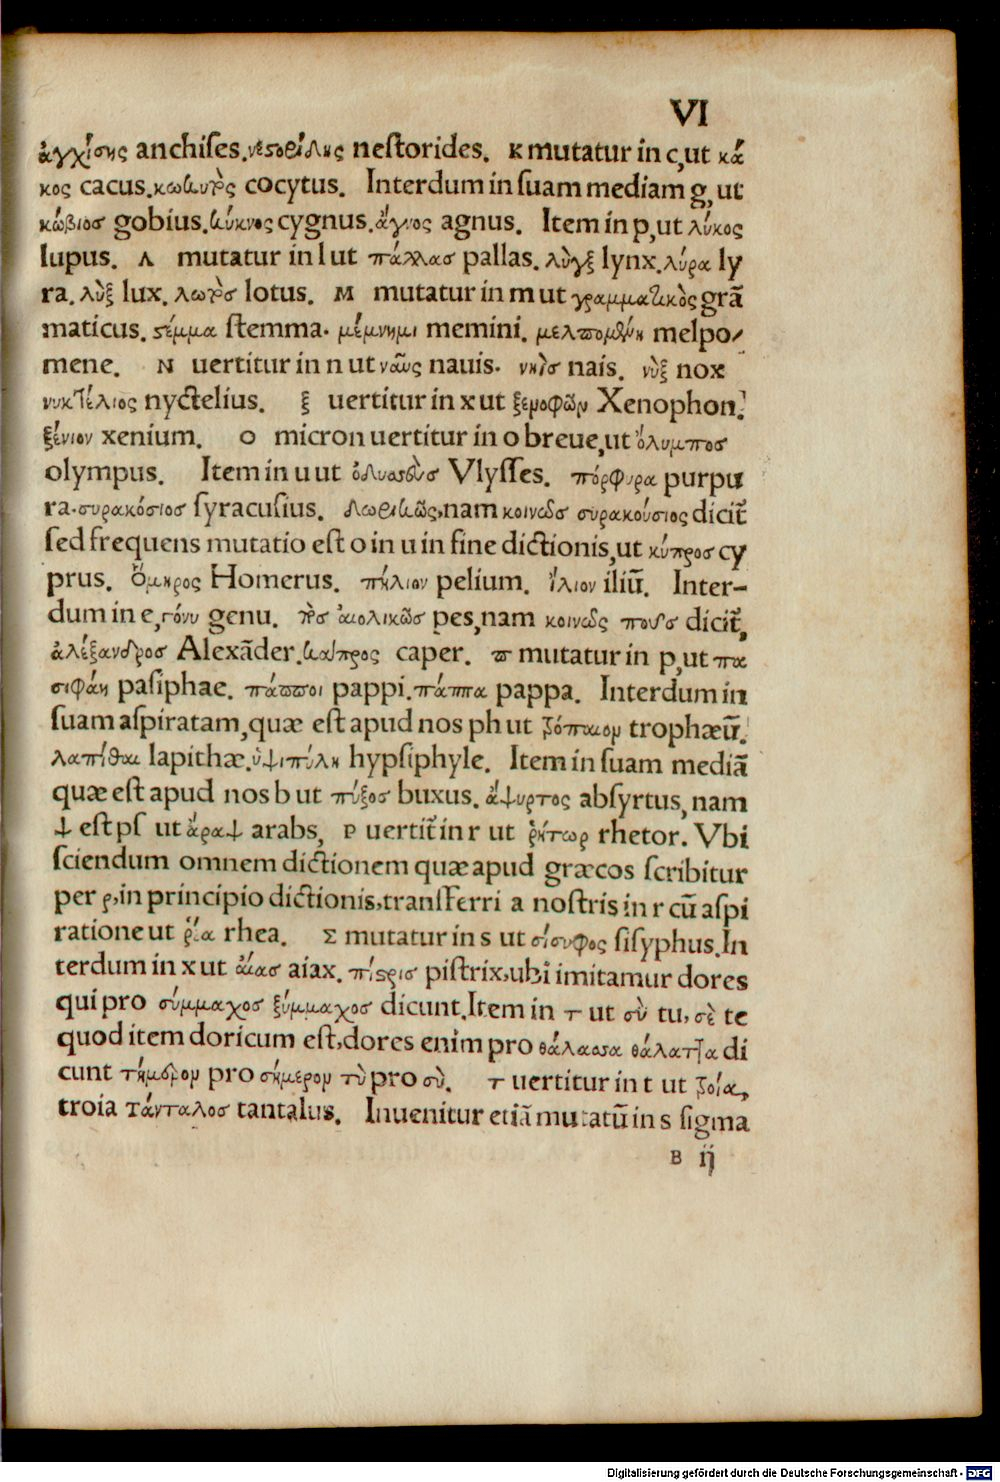 VI
ἀγχίσης anchiſes. νεστορίδης neſtorides. κ mutatur in c, ut κά
κος cacus. κωκυτὸς cocytus. Interdum in ſuam mediam g, ut
κώβιοσ gobius. κύκνος cygnus. ἄγνος agnus. Item in p, ut λύκος
lupus. Λ mutatur in l ut πάλλασ pallas. λὺγξ lynx. λύρα ly
ra. λὺξ lux. λωτὸσ lotus. Μ mutatur in m ut γραμματικὸς grã
maticus. στέμμα ſtemma. μέμνημι memini. μελπομένη melpo⸗
mene. Ν uertitur in n ut ναῦς nauis. νηὶσ nais. νὺξ nox
νυκτέλιος nyctelius. ξ uertitur in x ut ξενοφῶν Xenophon.
ξένιον xenium. Ο micron uertitur in o breue, ut ὀλυμποσ
olympus. Item in u ut ὀδυσσεὺσ Vlyſſes. πόρφυρα purpu
ra. συρακόσιος ſyracuſius. δωρικῶς, nam κοινῶσ συρακούσιος dicit᷑
ſed frequens mutatio eſt o in u in fine dictionis, ut κύπροσ cy
prus. Ὅμηρος Homerus. πήλιον pelium. ἴλιον iliũ. Inter-
dum in e, γόνυ genu. πὸσ αἰολικῶσ pes, nam κοινῶς ποῦσ dicit᷑,
ἀλέξανδροσ Alexãder. κάπρος caper. π mutatur in p, ut πα
σιφάη paſiphae. πάπποι pappi. πάππα pappa. Interdum in
ſuam aſpiratam, quæ eſt apud nos ph ut τρόπαιον trophæũ.
λαπίθαι lapithæ. ὑψιπύλη hypſiphyle. Item in ſuam mediã
quæ eſt apud nos b ut πύξοσ buxus. ἄψυρτος abſyrtus, nam
ψ eſt pſ ut ἄραψ arabs, Ρ uertit᷑ in r ut ῥήτωρ rhetor. Vbi
ſciendum omnem dictionem quæ apud græcos ſcribitur
per ρ, in principio dictionis, transferri a noſtris in r cũ aſpi
ratione ut ῥέα rhea. Σ mutatur in s ut σίσυφος ſiſyphus. In
terdum in x ut αἴασ aiax. πίστρισ piſtrix, ubi imitamur dores
qui pro σύμμαχοσ ξύμμαχοσ dicunt. Item in τ ut σὺ tu, σὲ te
quod item doricum eſt, dores enim pro θάλασσα θάλαττα di
cunt τήμερον pro σήμερον τὺ pro σὺ. τ uertitur in t ut τροία,
troia τάνταλοσ tantalus. Inuenitur etiã mutatũ in s ſigma
B ij
Digitalisierung gefördert durch die Deutsche Forschungsgemeinschaft - DFG